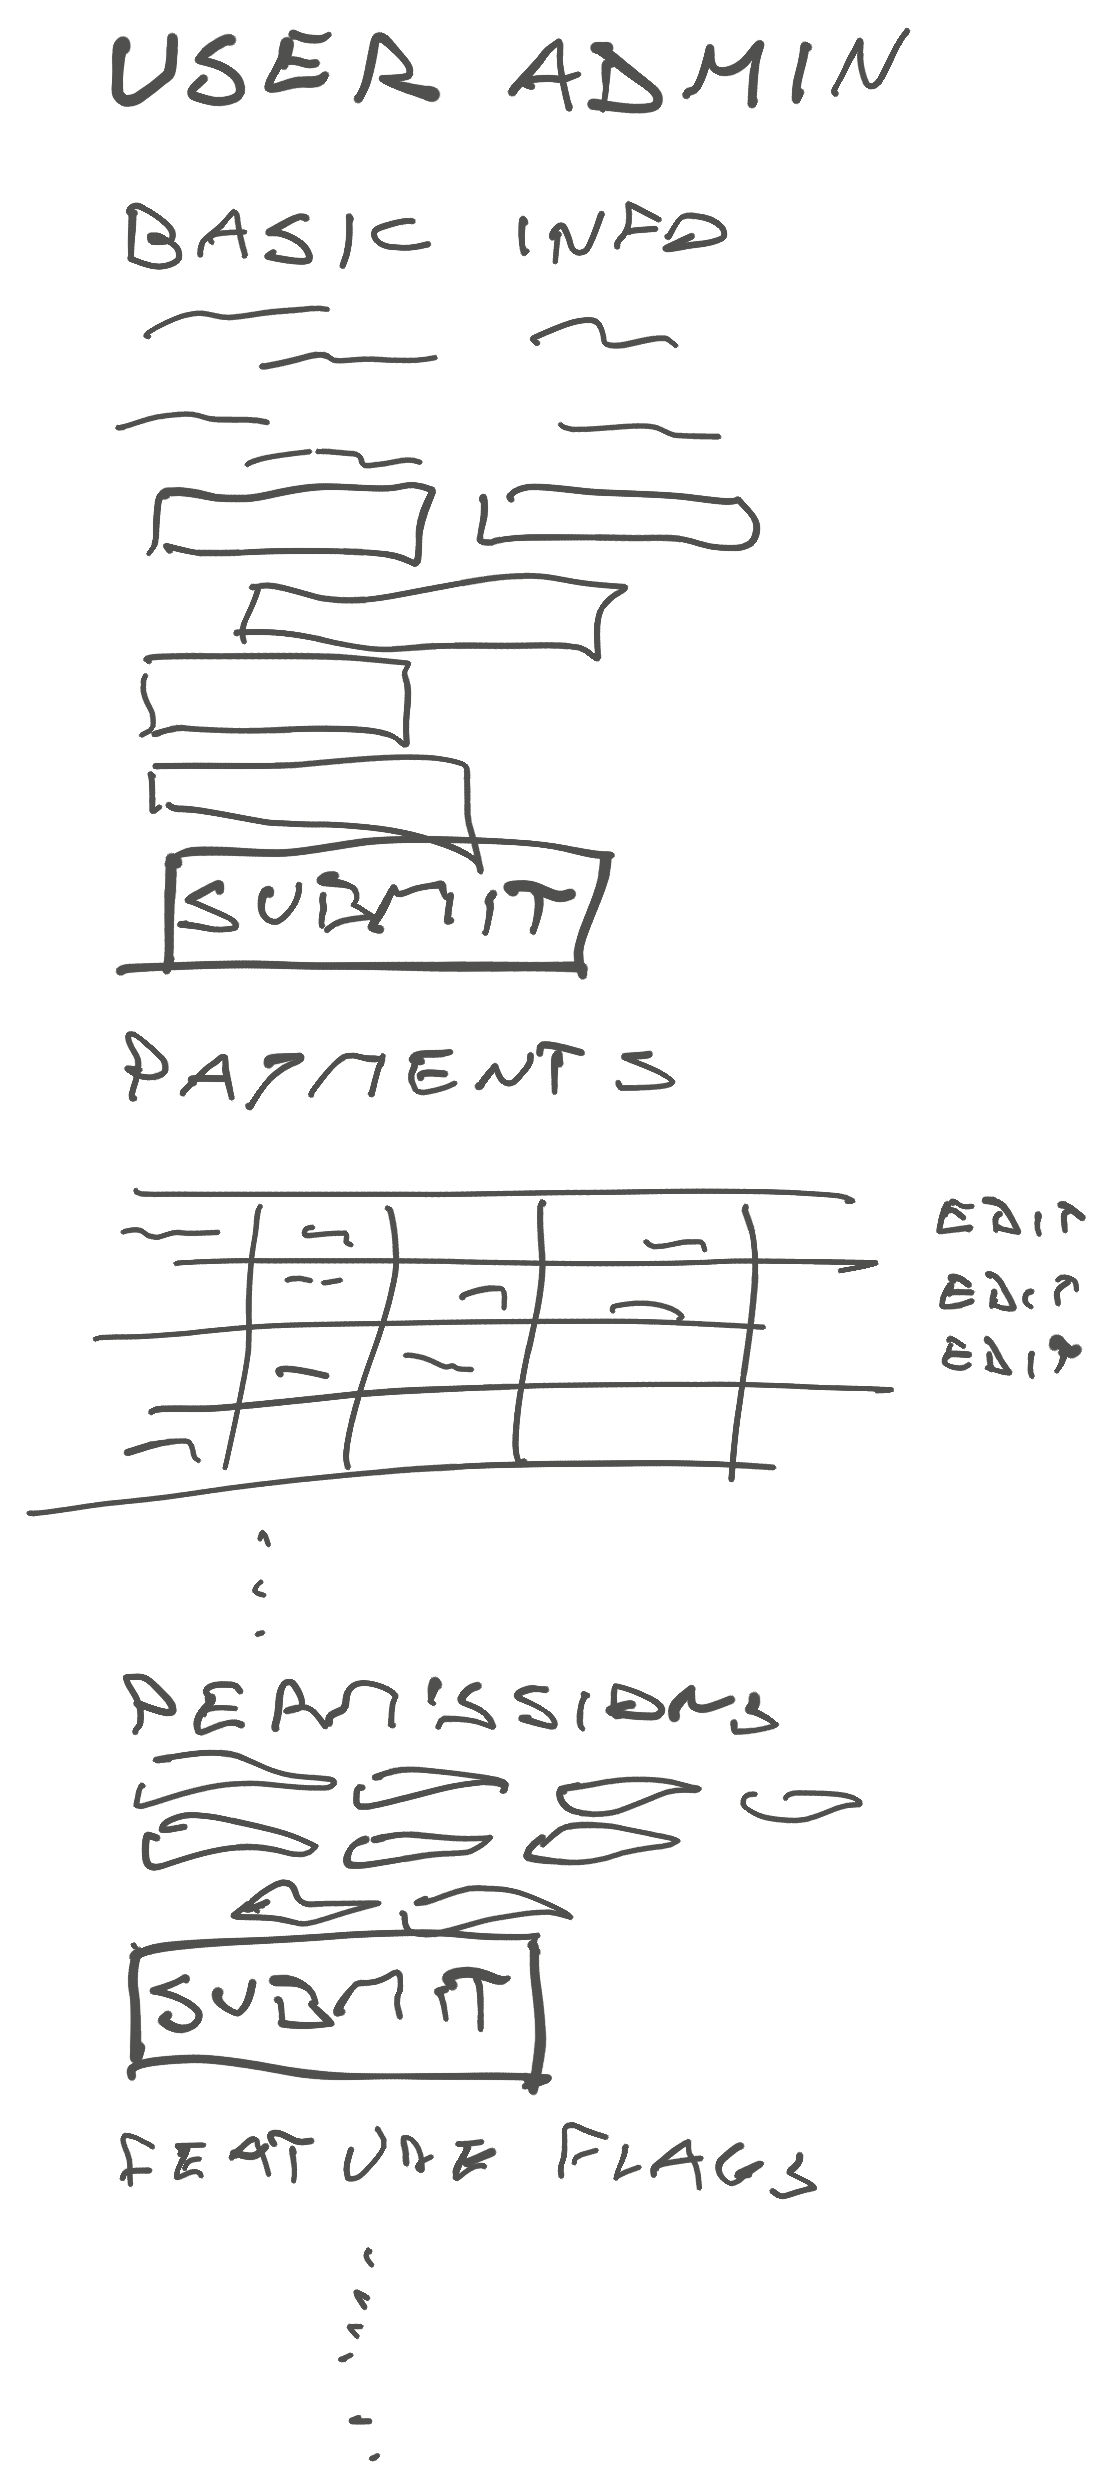 USER ADMIN
BASIC INFO
SUBMIT
PAYMENTS
EDIT
EDIT
EDIT
PERMISSIONS
SUBMIT
FEATURE FLAGS